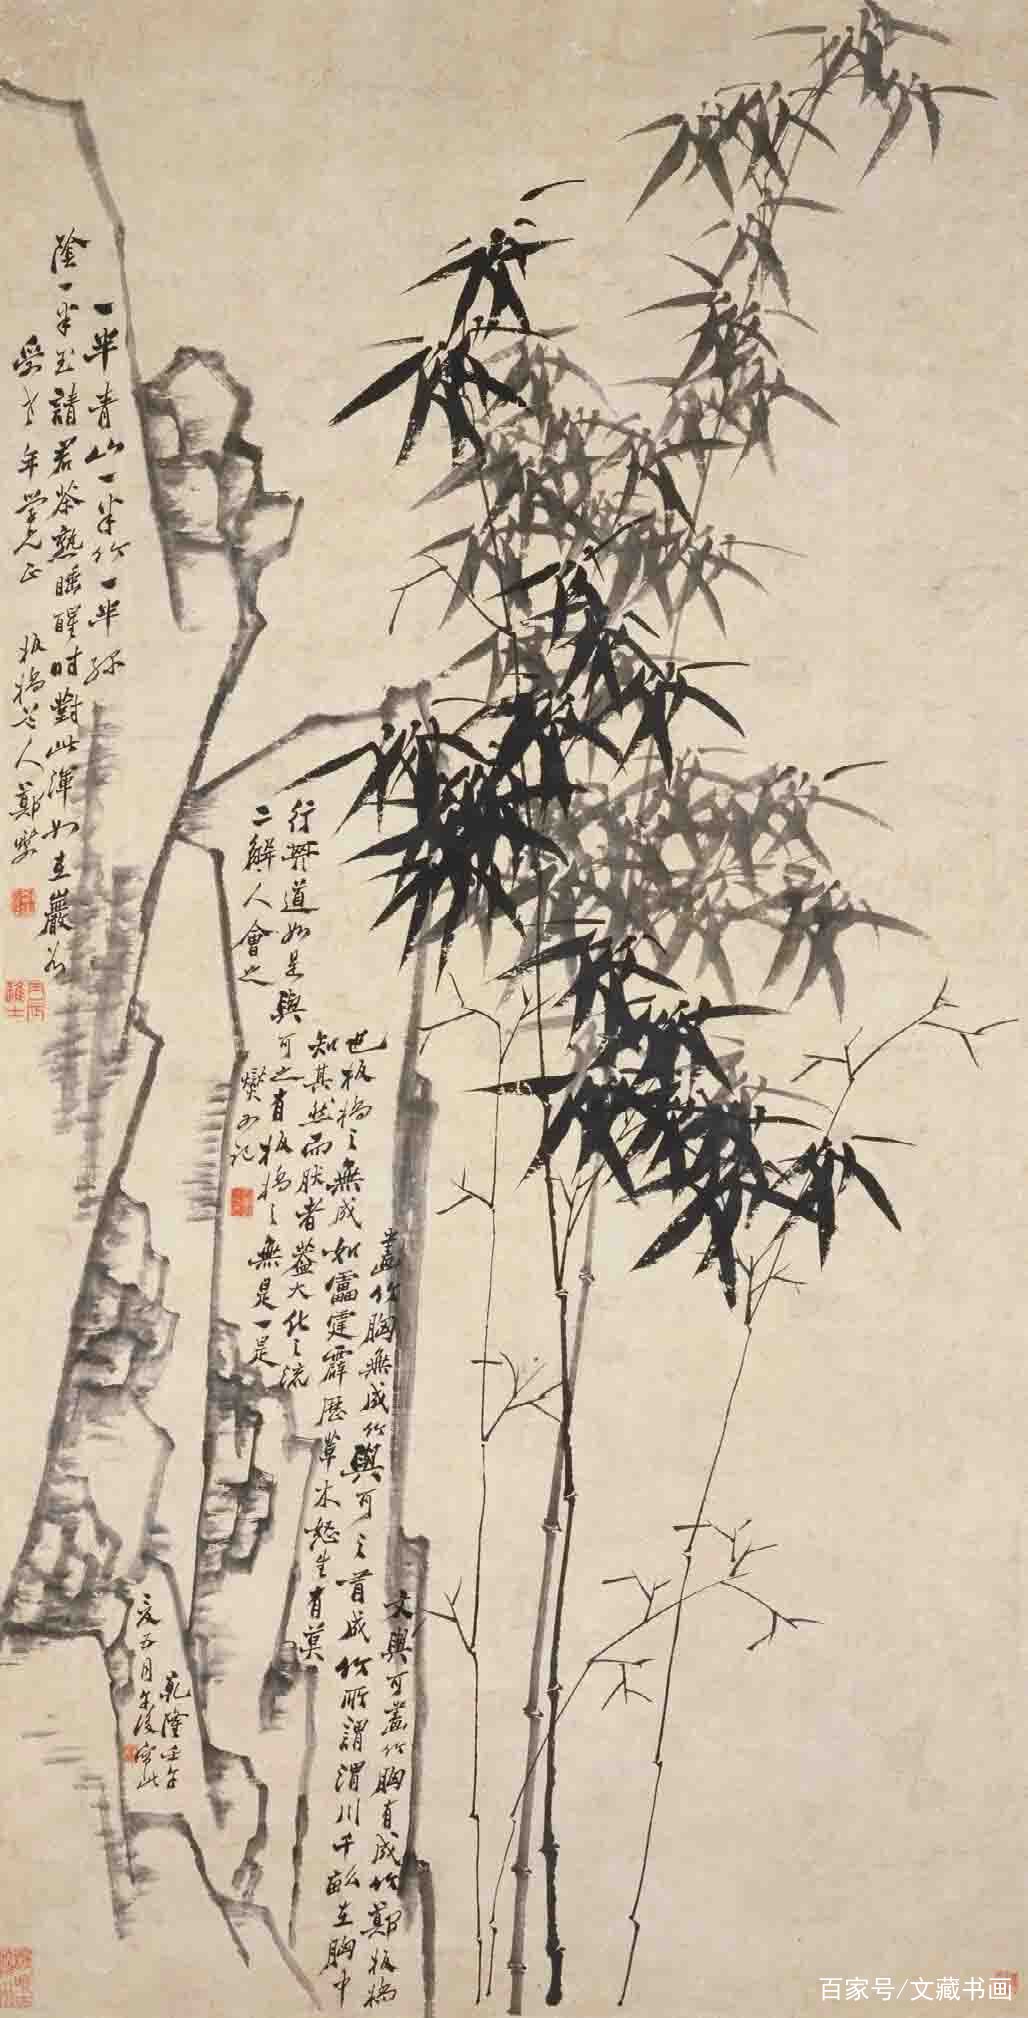 一半青山一半竹一半綠
陰一半玉請君茶熟睡醒時對此渾如在巖谷
受老年學兄正 板橋道人鄭燮
丙辰進士
文與可畫竹胸有成竹鄭板橋
畫竹胸無成竹與可之有成竹所謂渭川千畝在胸中
也板橋之無成如雷霆霹歷草木怒生有莫
知其然而然者蓋大化之流
行其道如是與可之有板橋之無是一是
二解人會之 燮又記
乾隆壬午
夏五月午後寫此
百家号/文藏书画